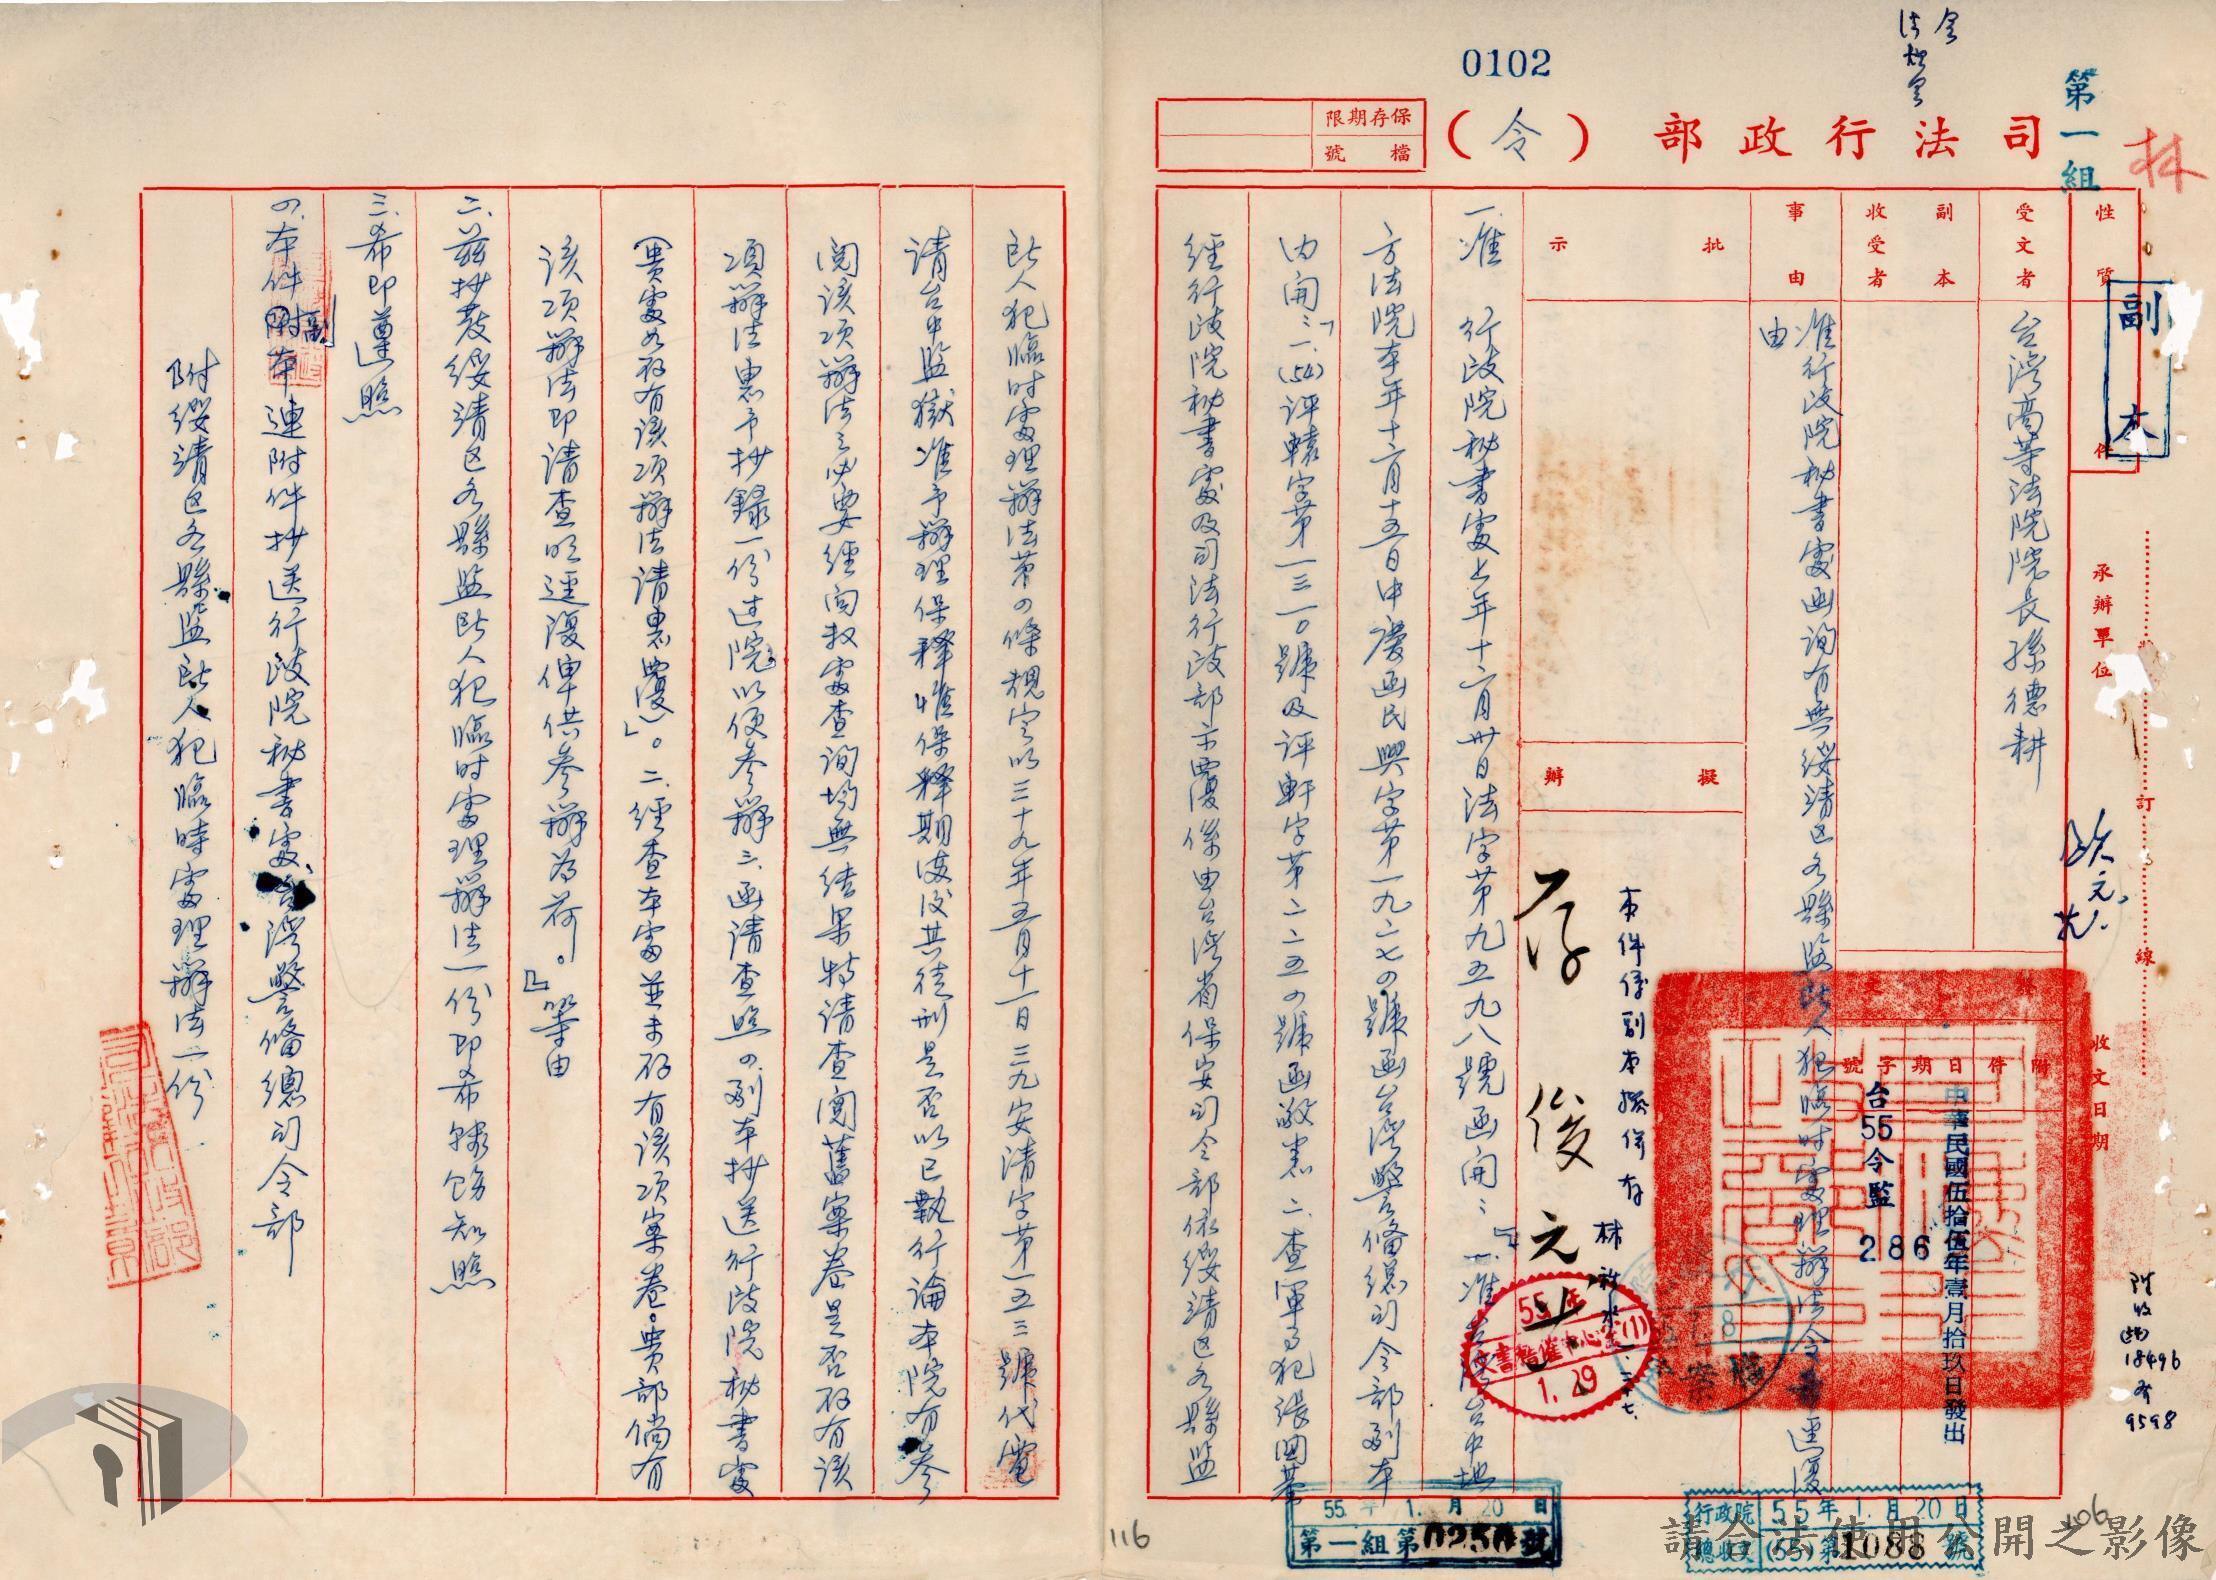 0102
第一組
林
司法行政部（令）
保存期限
檔號
性質
副本
件
承辦單位
訂
線
收文日期
受文者
台灣高等法院院長孫德耕
副本
收受者
事由
准行政院秘書處函詢有無綏清区各縣監所人犯臨時處理辦法令希逕復由
附件
日期
字號
中華民國伍拾伍年壹月拾玖日發出
台55令監
286
批示
擬辦
本件係副本擬併存
存
俊元
55年
1.29
一、准　行政院秘書處上年十二月卅日法字第九五九八號函開：『一、准台灣台中地
方法院本年十二月十五日中慶函民興字第一九二七四號函台灣警備總司令部副本
內開：「一、(54)評轅字第一三一〇號及評軒字第二二五四號函敬悉二、查軍事犯張國華
經行政院秘書處及司法行政部示覆係由台灣省保安司令部依綏清区各縣監
所人犯臨時處理辦法第四條規定以三十九年五月十一日三九安清字第一五三號代電
請台中監獄准予辦理保釋惟保釋期滿後其徒刑是否以已執行論本院有參
閱該項辦法之必要經向教處查詢均無結果特請查閱舊案卷是否存有該
項辦法惠予抄錄一份过院以便參辦三、函請查照四、副本抄送行政院秘書處
（貴處如存有該項辦法請惠覆）」。二、經查本處並未存有該項案卷。貴部倘有
該項辦法即請查明逕復俾供參辦為荷。』等由
二、茲抄發綏清区各縣監所人犯臨時處理辦法一份即希轉飭知照
三、希即遵照
四、本件副本連附件抄送行政院秘書處、台灣警備總司令部
附綏清区各縣監所人犯臨時處理辦法一份
附收
(54)
18496
9598
55年1.月20日
第一組第0250號
行政院
總收文
55年1.月20日
(55)第1088號
116
106
請合法使用公開之影像